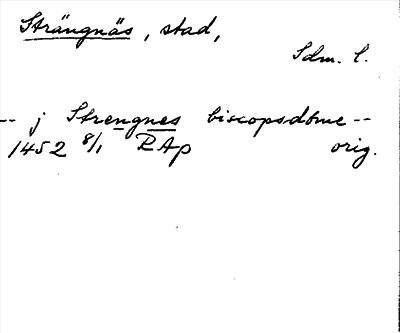 Strängnäs, stad,
Sdm. l.
-- j Strengnes biscopsdöme --
1452 8/1 RAp orig.